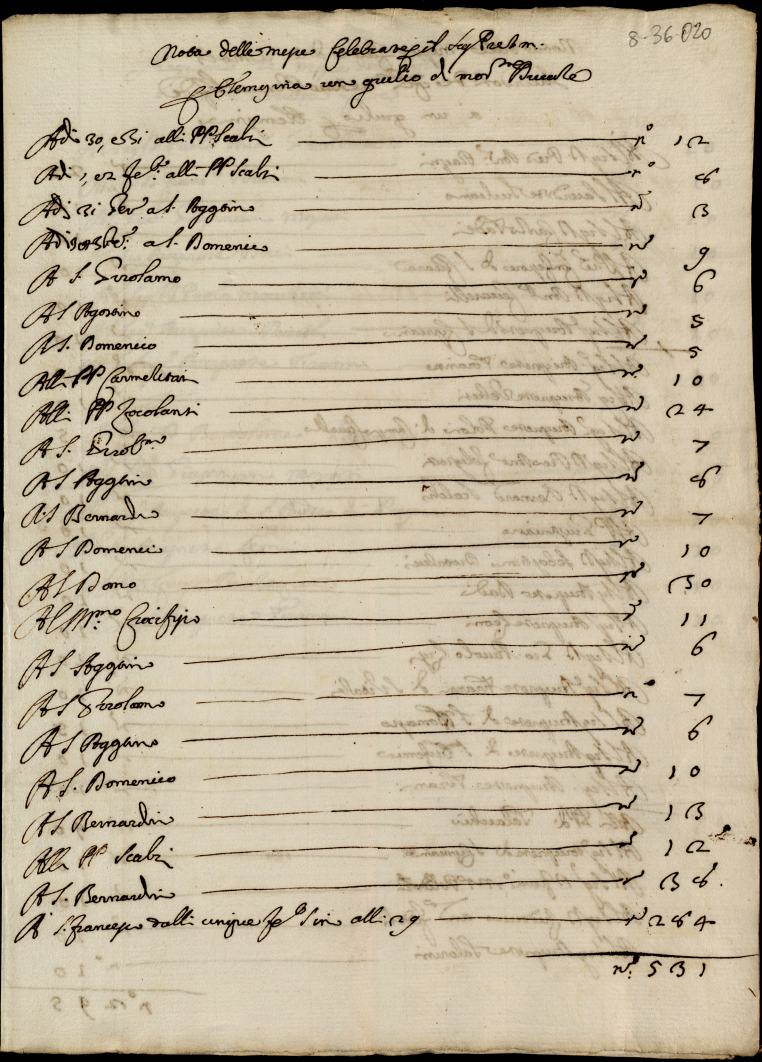 8-36-020
Nota delle messe celebrate per il Sig.r Pret.m.
Elemosina un giulio di mon.
Adi 30, e 31 alli PP. Scalzi n° 12
Adi 1, e 2 Feb.° alli PP Scalzi n° 8
Adi 31 Gen.° a S. Aggostino n° 3
a S. Domenico n° 9
A S. Girolamo n° 6
A S Agostino n° 5
A S. Domenico n° 5
Alli PP Carmelitani n° 10
Alli PP Zocolanti n° 24
A S. Girol.mo n° 7
A S Aggostino n° 8
A S Bernardino n° 7
A S Domenico n° 10
A S Bono n° 30
Al SS.mo Crocifisso n° 11
A S Aggostino n° 6
A S Girolamo n° 7
A S Aggostino n° 6
A S. Domenico n° 10
A S Bernardin n° 13
Alli PP Scalzi n° 12
A S. Bernardin 38.
A S. Francesco dalli cinque Feb.° sin alli 29 n° 284
n°: 531